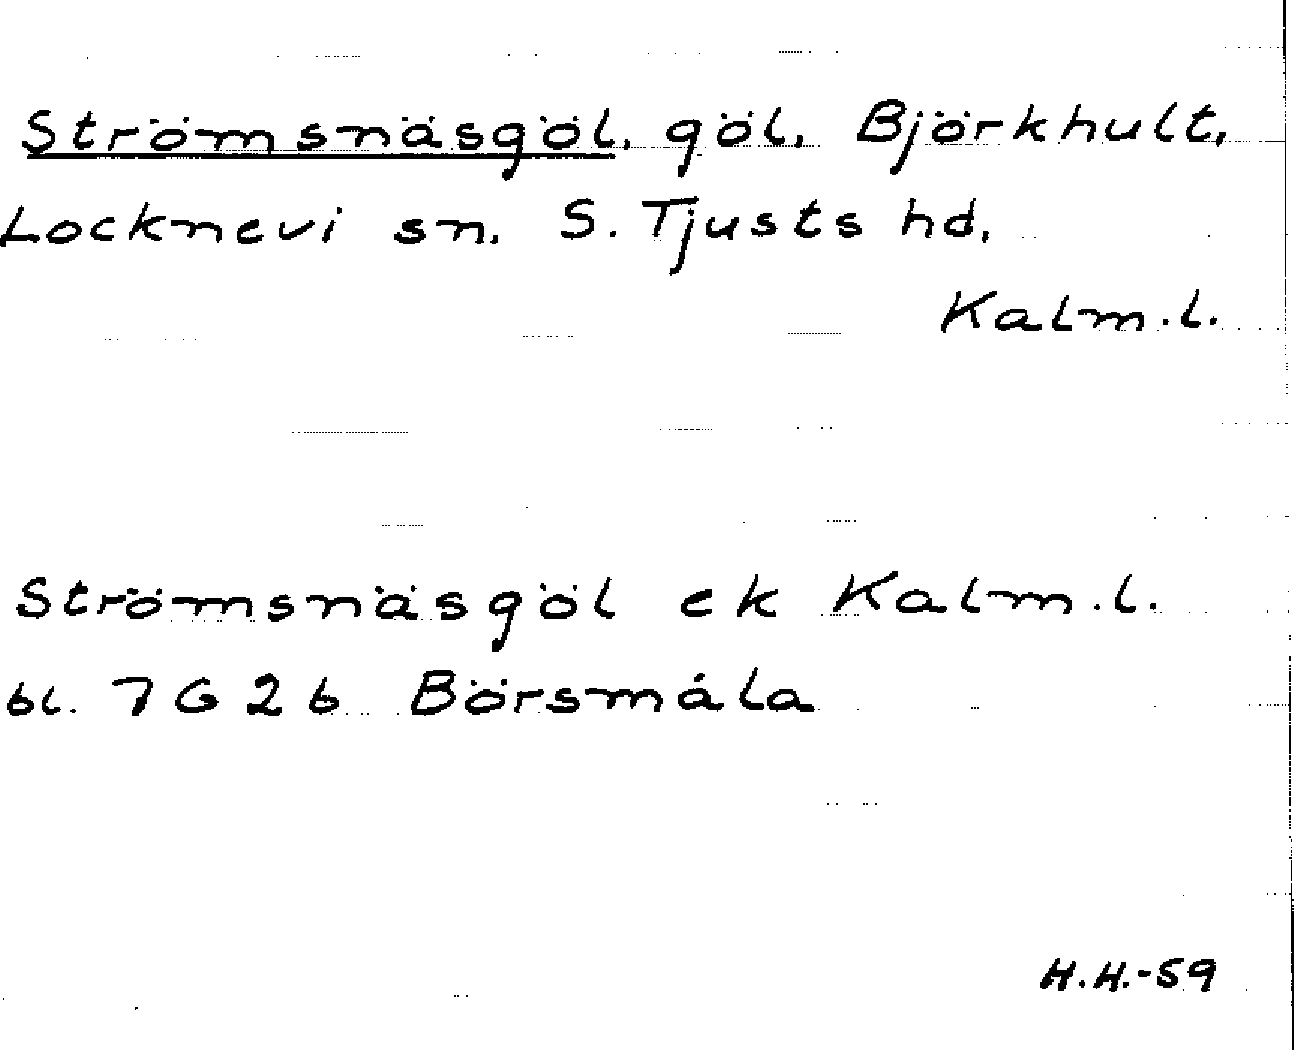 Strömsnäsgöl, göl, Björkhult,
Locknevi sn. S. Tjusts hd,
Kalm.l.
Strömsnäsgöl ek Kalm.l.
bl. 7G2b Börsmåla
H.H.-59